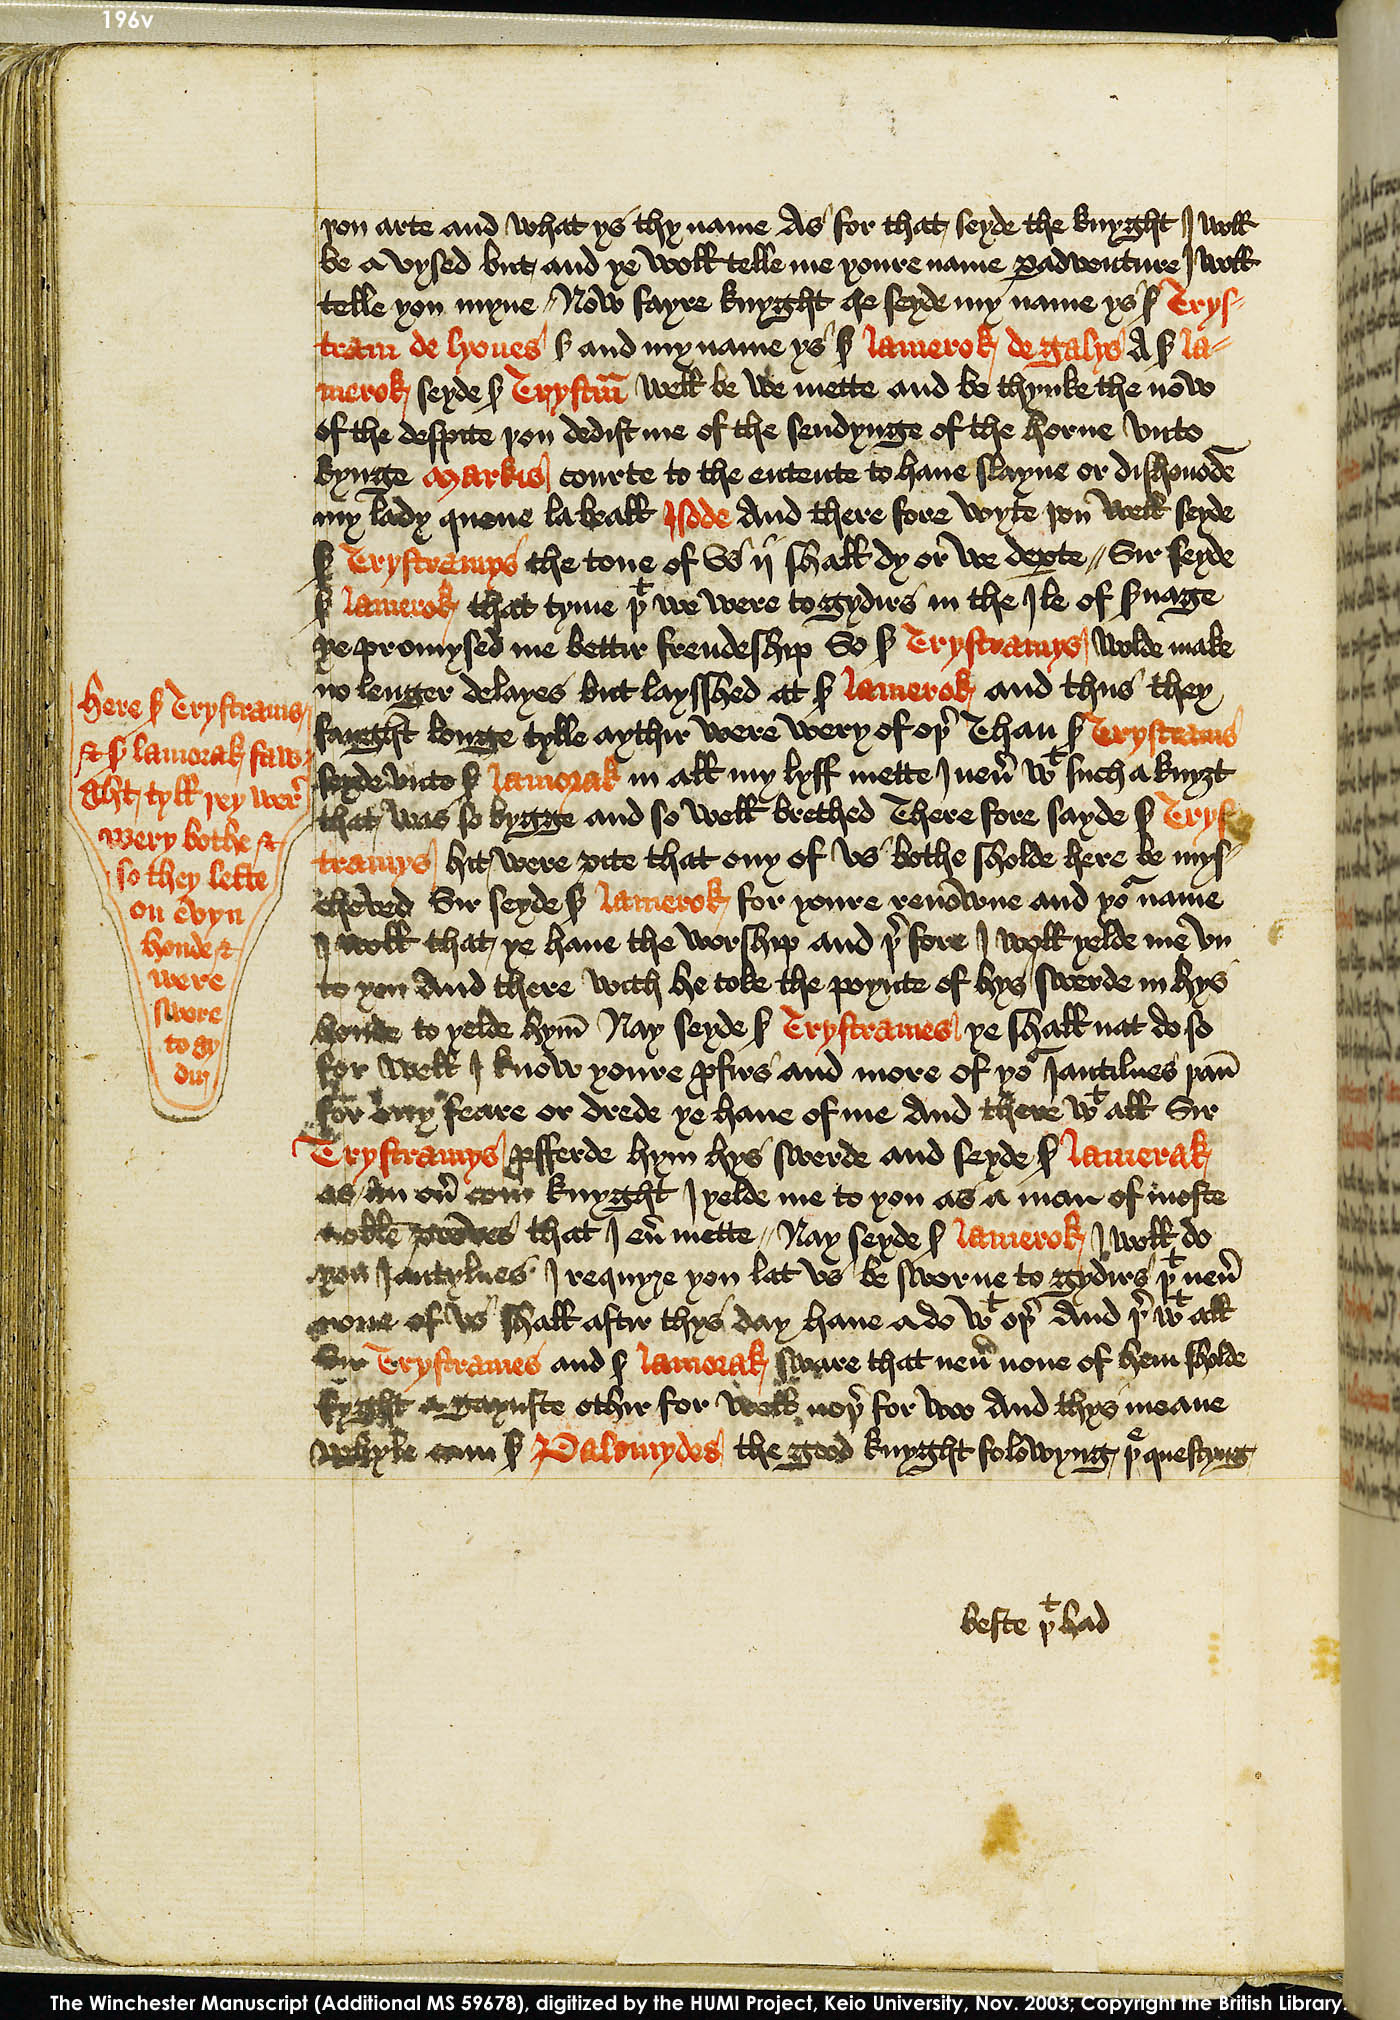 196v
þou arte and what ys thy name As for that seyde the knyght I woll
be avysed but and ye woll telle me youre name ꝑadventure I woll
telle you myne // Now fayre knyght he seyde my name ys ẜ Trys-
tram de lyones ẜ and my name ys ẜ lamerok de galys A ẜ la-
merok seyde ẜ Trystrm̄ well be we mette and be thynke the now
of the despite þou dedist me of the sendynge of the horne vnto
kynge Markis courte to the entente to haue slayne or dishonode͞
my lady quene la beall Isode And there fore wyte þou well seyde
ẜ Trystramys the tone of vs ij shall dy or we deꝑte // Sir seyde
ẜ lamerok that tyme þᵗ we were to gydirs in the Ile of ẜuage
ye promysed me bettir frendeship So ẜ Trystramys wolde make
no lenger delayes but laysshed at ẜ lamerok and thus they
faught longe tylle aythir were wery of oþ͛ Than ẜ Trystrams
seyde vnto ẜ lamorak in all my lyff mette I neu͛ wᵗ such a knyȝt
that was so bygge and so well brethed There fore sayde ẜ Trys
tramys hit were pite that ony of vs bothe sholde here be mys-
cheved Sir seyde ẜ lamerok for youre renowne and yoʳ name
I woll that ye haue the worship and þ͛ fore I woll yelde me vn
to you And there with he toke the poynte of hys swerde in hys
honde to yelde hym̄ Nay seyde ẜ Trystrames ye shall nat do so
for well I know youre ꝓfirs and more of yoʳ Jantilnes þan̄
for ony feare or drede ye haue of me And there wᵗ all Sir
Trystramys ꝓfferde hym hys swerde and seyde ẜ lamerak
as an ou͛ com knyght I yelde me to you as a man of moste
noble proves that I eu͛ mette // Nay seyde ẜ lamerok I woll do
you Jantylnes I requyre you lat vs be sworne to gydirs þᵗ neu͛
none of vs shall aftir thys day haue ado wᵗ oþ͛ And þ͛ wᵗ all
Sir Trystrames and ẜ lamorak sware that neu͛ none of hem sholde
fyght a gaynste othir for well noþ͛ for woo And thys meane
whyle cam ẜ Palomydes the good knyght folowyng þᵉ questyng
here ẜ Trystrams
& ẜ lamorak faw
ght tyll þey wer͛
wery bothe &
so they lefte
on evyn
honde &
were
swore
to gy
dir
beste þᵗ had
The Winchester Manuscript (Additional MS 59678), digitized by the HUMI Project, Keio University, Nov. 2003; Copyright the British Library.